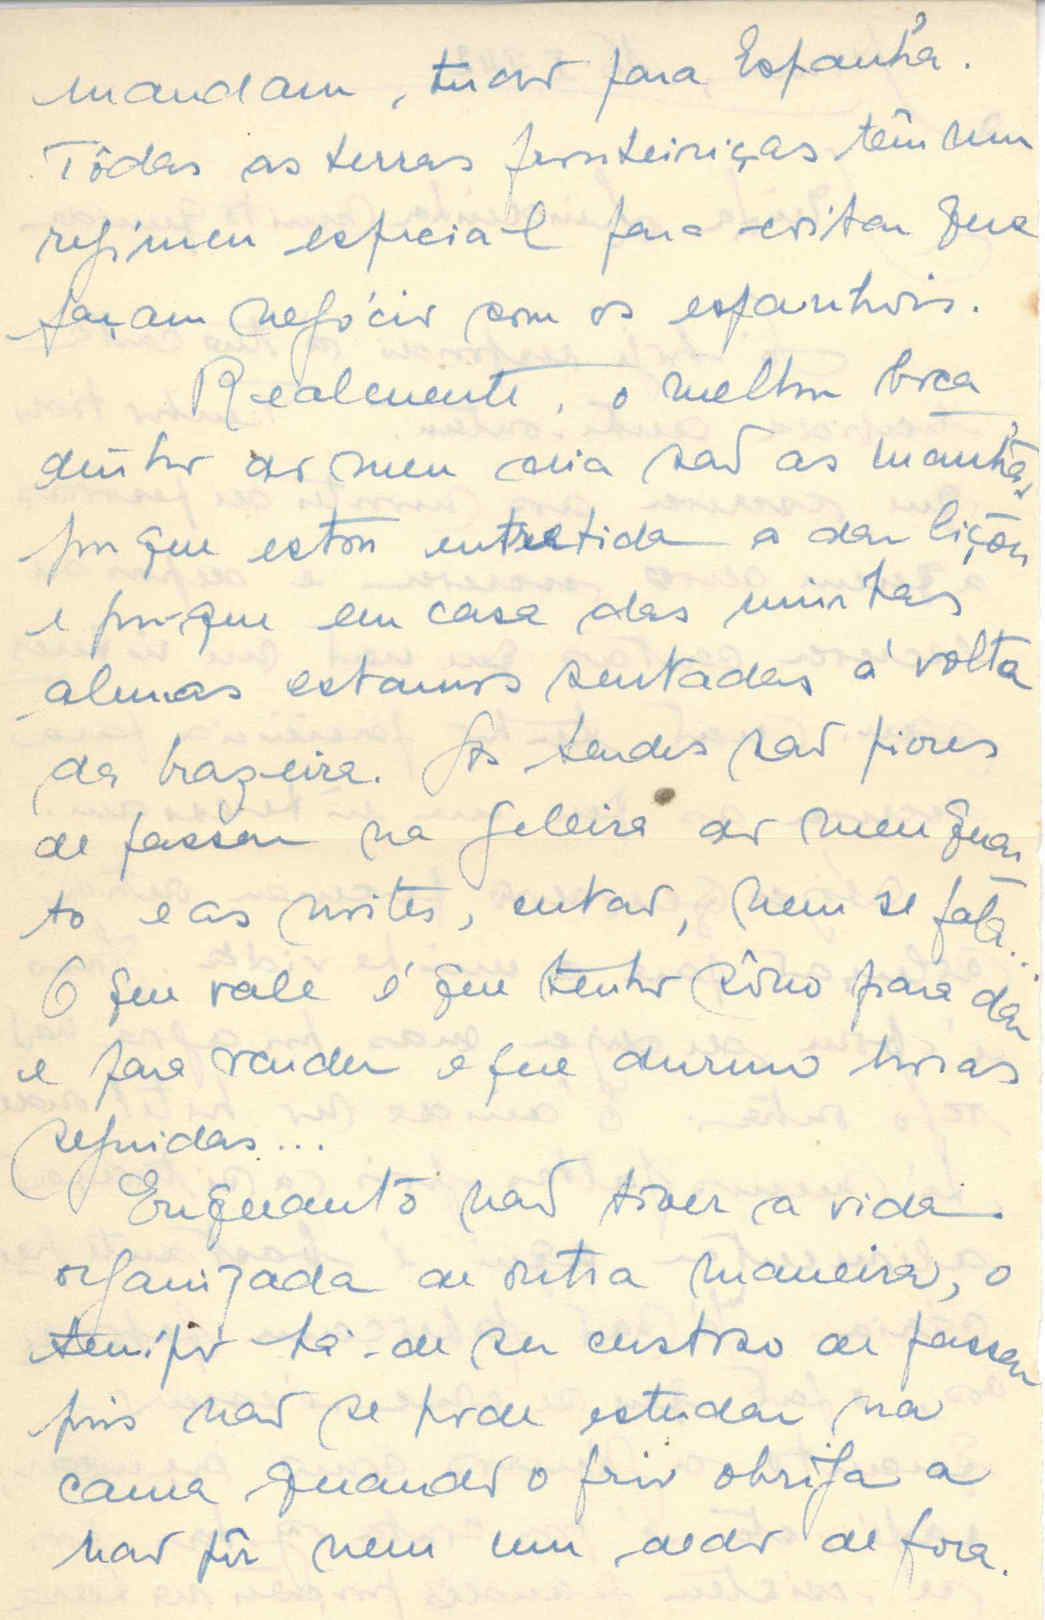 mandam, tudo para Espanha.
Tôdas as terras fronteiriças têm um
regímen especial para evitar que
façam negócio com os espanhois.
Realmente, o melhor boca
dinho do meu dia são as manhãs
porque estou entretida a dar lições
e porque em casa das minhas
alunas estamos sentadas á volta
da brazeira. As tardes são piores
de passar na geleira do meu quar
to e as noites, então, nem se fala...
O que vale é que tenho sôno para dar
e para vender e que durmo horas
seguidas...
Enquanto não tiver a vida
organizada de outra maneira, o
tempo há-de ser custoso de passar
pois não se pode estudar na
cama quando o frio obriga a
não pôr nem um dedo de fora.